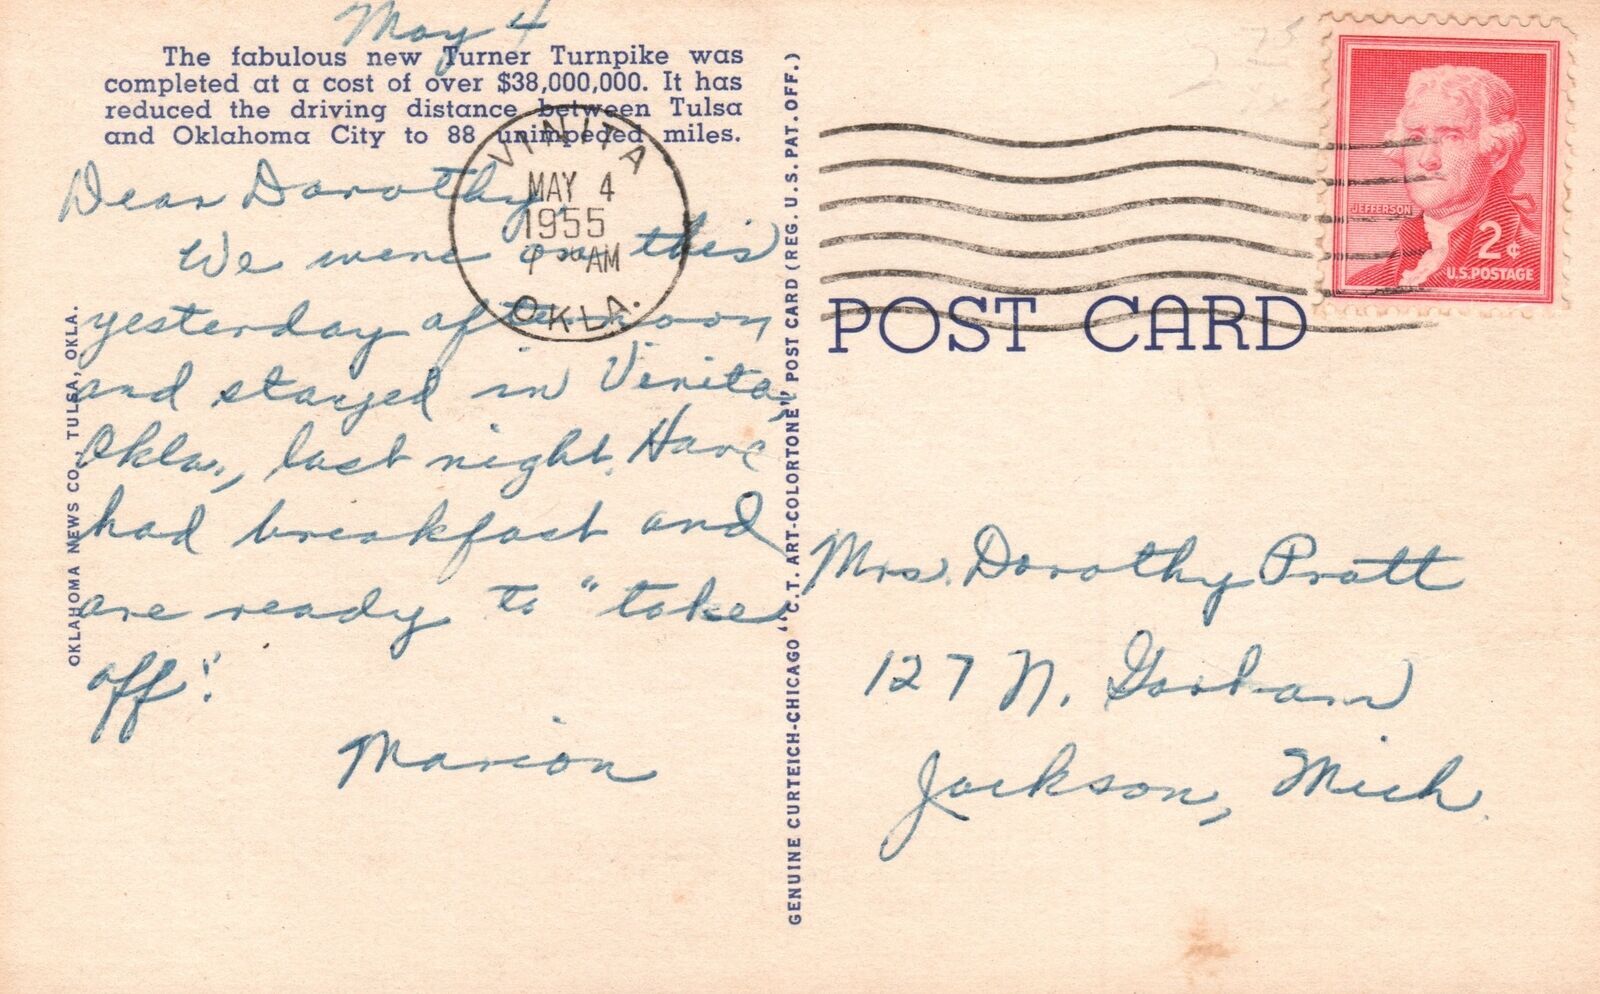 May 4
The fabulous new Turner Turnpike was
completed at a cost of over $38,000,000. It has
reduced the driving distance between Tulsa
and Oklahoma City to 88 unimpeded miles.
Dear Dorothy,
We were on this
yesterday afternoon
and stayed in Vinita,
Okla., last night. Have
had breakfast and
are ready to "take
off".
Marion
VINITA
MAY 4
1955
AM
OKLA.
OKLAHOMA NEWS CO., TULSA, OKLA.
GENUINE CURTEICH-CHICAGO "C.T. ART-COLORTONE" POST CARD (REG. U.S. PAT. OFF.)
POST CARD
JEFFERSON
2¢
U.S. POSTAGE
Mrs. Dorothy Pratt
127 N. Gorham
Jackson, Mich.